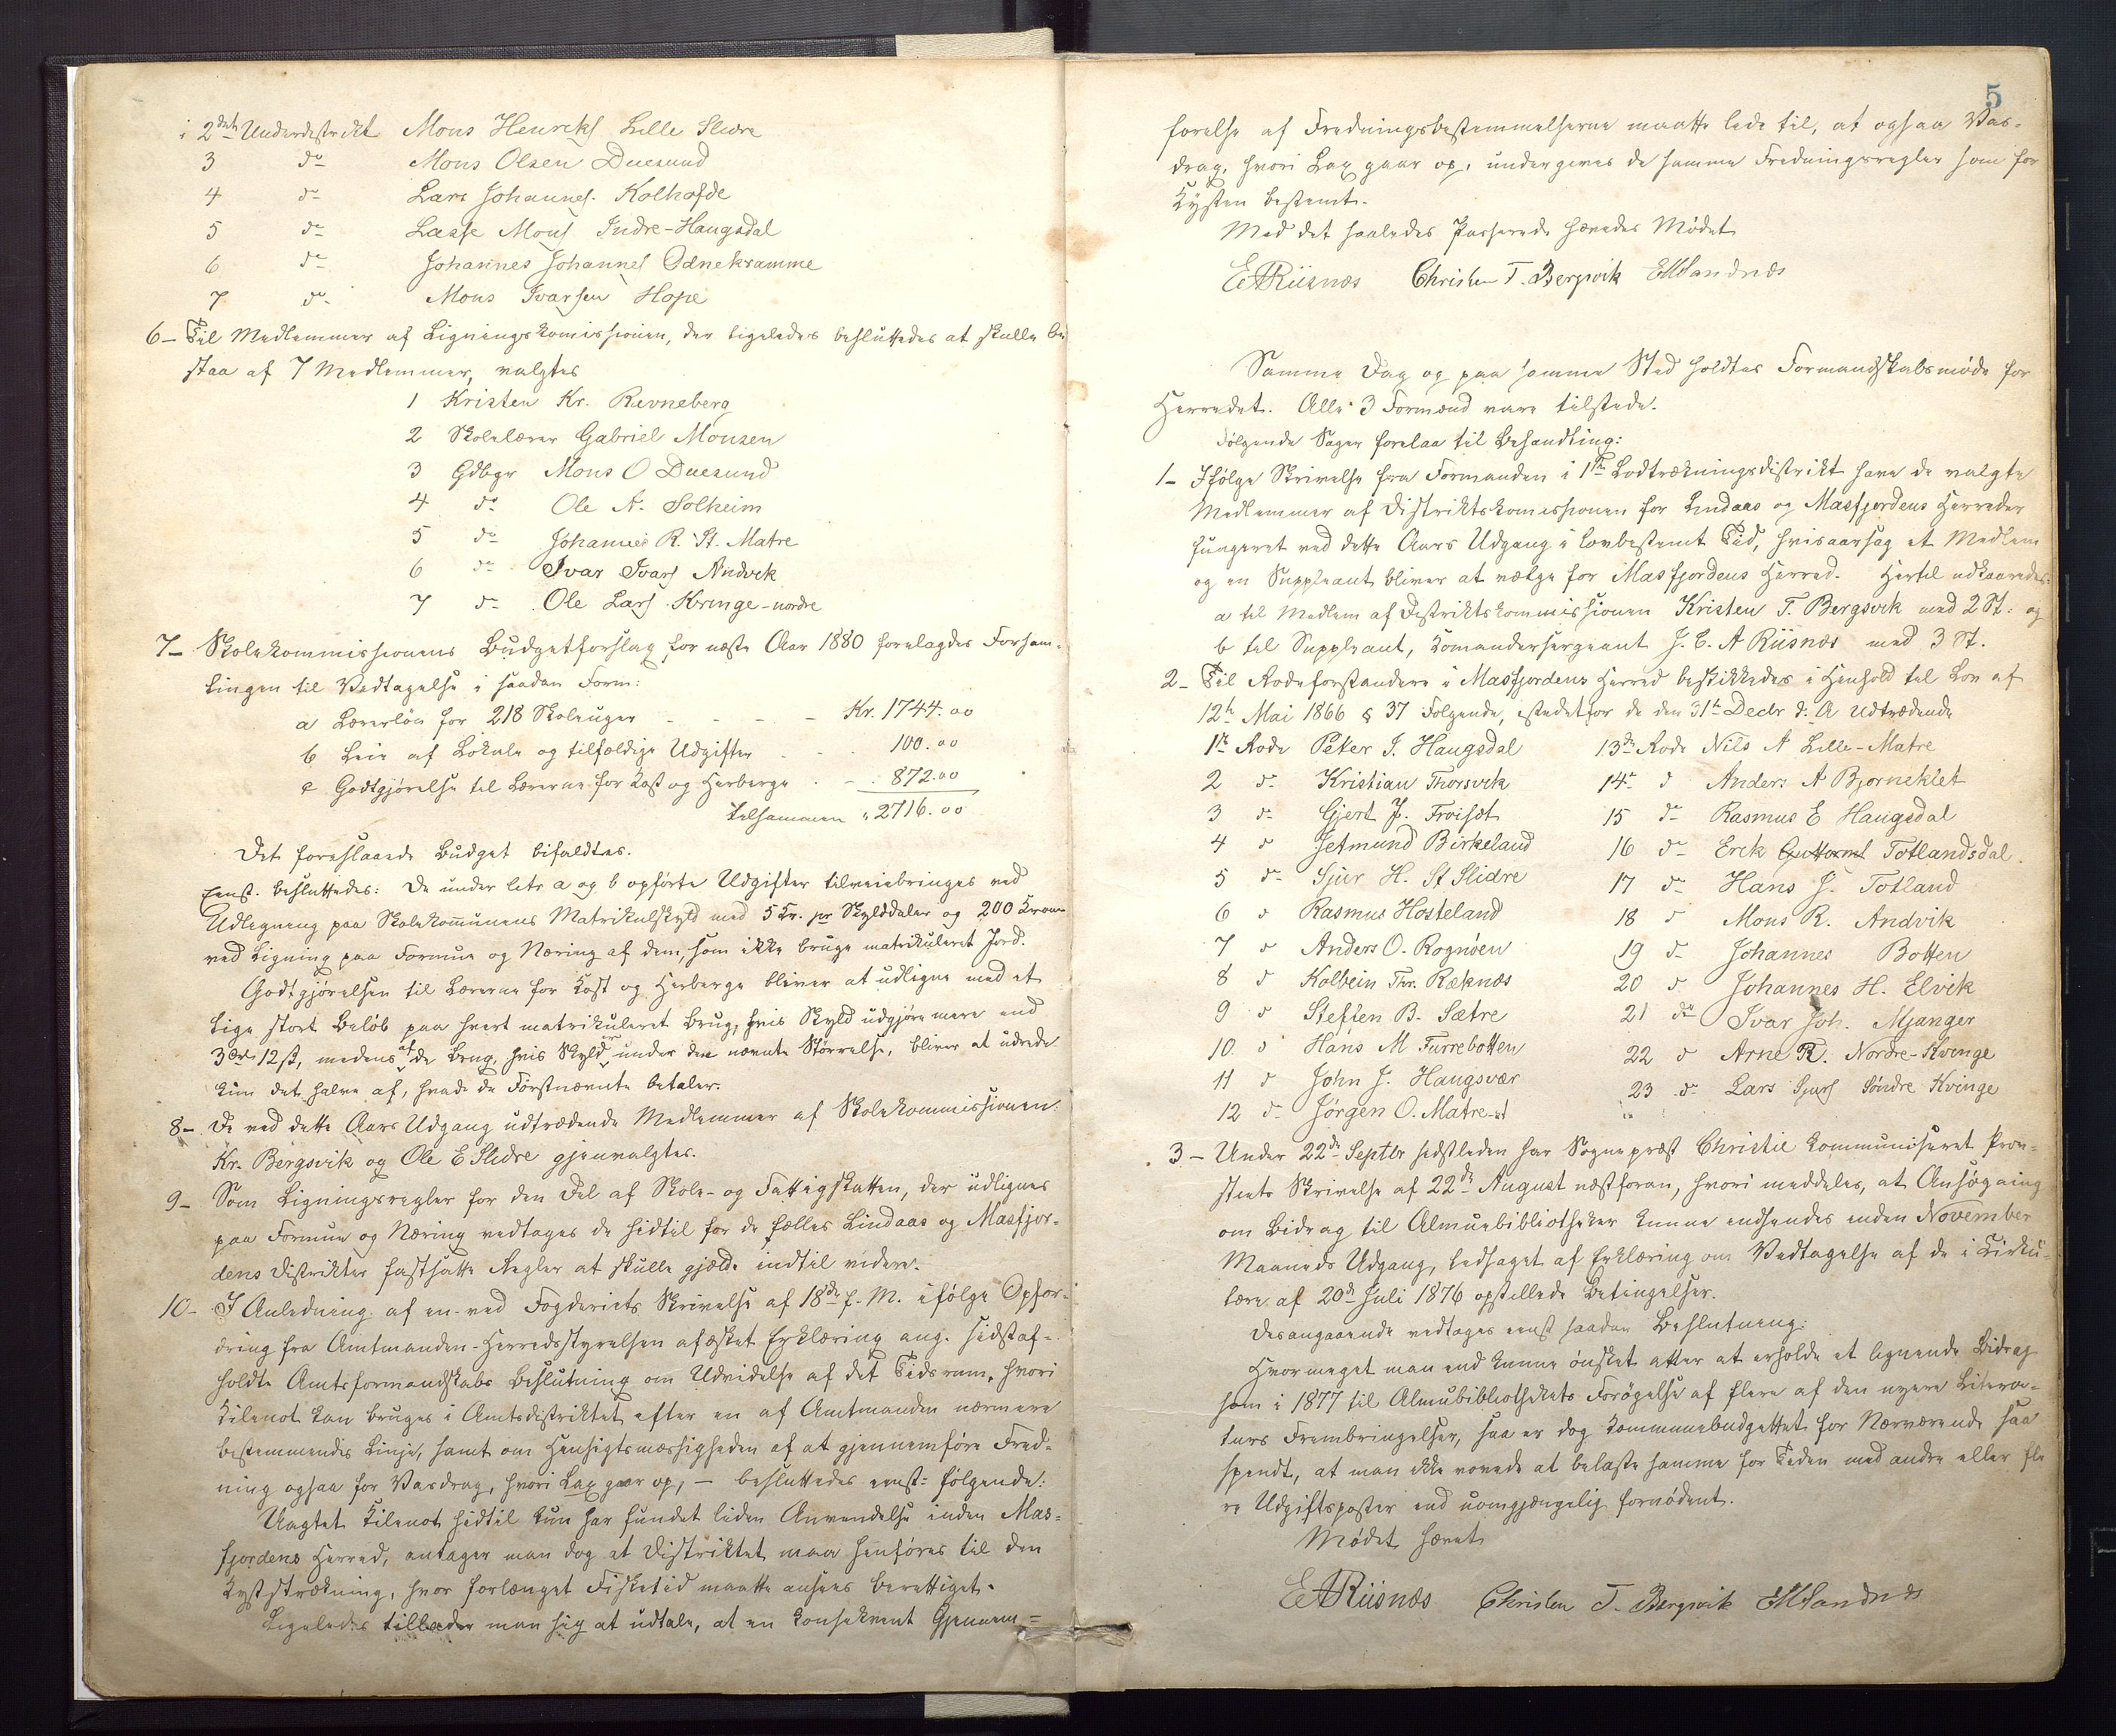 i 2det Underdistrikt Mons Henriks Lille Slidre
3 do Mons Olsen Duesund
4 do Lars Johannes. Kolhofde
5 do Lasse Mons Indre-Haugsdal
6 do Johannes Johannes Odnekvamme
7 do Mons Ivarsen Hope
6- Til Medlemmer af Ligningskomissionen, der ligeledes besluttedes at skulle be
staa af 7 Medlemmer, valgtes
1 Kristen Kr. Ravneberg
2 Skolelærer Gabriel Monsen
3 Gdbgr Mons O Duesund
4 do Ole A. Solheim
5 do Johannes R. St. Matre
6 do Ivar Ivars Andvik
7 do Ole Lars Kvinge-nordre
7- Skolekommissionens Budgetforslag for næste Aar 1880 forelagdes Forsam-
lingen til Vedtagelse i saadan Form:
a Lærerløn for 218 Skoleuger - - - - Kr. 1744.00
b Leie af Lokale og tilfældige Udgifter - - 100.00
c Godtgjørelse til Lærerne for Kost og Herberge - - 872.00
tilsammen " 2716.00
Det foreslaaede Budget bifaldtes.
Eenst. besluttedes: De under litr a og b opførte Udgifter tilveiebringes ved
Udlegning paa Skolekommunens Matrikulskyld med 5 Kr. pr Skylddaler og 200 Kroner
ved Ligning paa Formue og Næring af dem, som ikke bruge matrikuleret Jord.
Godtgjørelsen til Lærerne for Kost og Herberge bliver at udligne med et
lige stort Beløb paa hvert matrikuleret Brug, hvis Skyld udgjøre mere end
3 Ort 12 ß, medens af de Brug, hvis Skyld er under den nævnte Størrelse, bliver at udrede
kun det halve af, hvad de Førstnævnte betaler.
8- De ved dette Aars Udgang udtrædende Medlemmer af Skolekommissionen:
Kr. Bergsvik og Ole E Slidre gjenvalgtes.
9- Som Ligningsregler for den Del af Skole- og Fattigskatten, der udlignes
paa Formue og Næring vedtages de hidtil for de fælles Lindaas og Masfjor-
dens Distrikter fastsatte Regler at skulle gjælde indtil videre.
10- I Anledning af en ved Fogderiets Skrivelse af 18de f. M. ifølge Opfor-
dring fra Amtmanden Herredsstyrelsen afæsket Erklæring ang. sidstaf-
holdte Amtsformandskabs Beslutning om Udvidelse af det Tidsrum, hvori
Kilenot kan bruges i Amtsdistriktet efter en af Amtmanden nærmere
bestemmendes Linje, samt om Hensigtsmæssigheden af at gjennemføre Fred-
ning ogsaa for Vasdrag, hvori Lax gaar op, - besluttedes eenst: følgende:
Uagtet Kilenot hidtil kun har fundet liden Anvendelse inden Mas-
fjordens Herred, antager man dog at Distriktet maa henføres til den
Kyststrækning, hvor forlænget Fisketid maatte ansees berettiget.
Ligeledes tillader man sig at udtale, at en konsekvent Gjennem-
5
førelse af Fredningsbestemmelserne maatte lede til, at ogsaa Vas-
drag, hvori Lax gaar op, undergives de samme Fredningsregler som for
Kysten bestemt.
Med det saaledes Passerede hævedes Mødet
E A Riisnæs Christen T. Bergsvik E M Sandnæs
Samme Dag og paa samme Sted holdtes Formandskabsmøde for
Herredet. Alle 3 Formænd vare tilstede.
Følgende Sager forelaa til Behandling:
1- Ifølge Skrivelse fra Formanden i 1ste Lodtrækningsdistrikt have de valgte
Medlemmer af Distriktskomissionen for Lindaas og Masfjordens Herreder
fungeret ved dette Aars Udgang i lovbestemt Tid, hvisaarsag et Medlem
og en Suppleant bliver at vælge for Masfjordens Herred. Hertil udkaaredes:
a til Medlem af Distriktskommissionen Kristen T. Bergsvik med 2 St: og
b til Suppleant, Komandersergeant J. E. A Riisnæs med 3 St.
2- Til Rodeforstandere i Masfjordens Herred beskikkedes i Henhold til Lov af
12te Mai 1866 § 37 Følgende, istedetfor de den 31te Decbr d: A udtrædende
1ste Rode Peter J. Haugsdal
2 do Kristian Thorsvik
3 do Gjert J. Frøiset
4 do Jetmund Birkeland
5 do Sjur H. St Slidre
6 do Rasmus Hosteland
7 do Anders O. Rognøen
8 do Kolbein Thr. Reknæs
9 do Steffen B. Sætre
10 do Hans M Furrebotten
11 do John J. Haugsvær
12 do Jørgen O. Matre-st
13de Rode Nils A Lille-Matre
14 do Anders A Bjørneklet
15 do Rasmus E Haugsdal
16 do Erik Guttorms Totlandsdal
17 do Hans J. Totland
18 do Mons R. Andvik
19 do Johannes Botten
20 do Johannes H. Elvik
21 do Ivar Joh. Mjanger
22 do Arne R. Nordre-Kvinge
23 do Lars Sjurs Søndre Kvinge
3- Under 22de Septbr sidstleden har Sognepræst Christie kommuniseret Prov-
stiets Skrivelse af 22de August næstforan, hvori meddeles, at Ansøgning
om Bidrag til Almuebibliotheker kunne indsendes inden November
Maaneds Udgang, ledsaget af Erklæring om Vedtagelse af de i Cirku-
lære af 20de Juli 1876 opstillede Betingelser.
Desangaaende vedtages eenst saadan Beslutning:
Hvormeget man end kunne ønsket atter at erholde et lignende Bidrag
som i 1877 til Almuebibliothekets Forøgelse af flere af den nyere Litera-
turs Frembringelser, saa er dog Kommunebudgettet for Nærværende saa
spendt, at man ikke vovede at belaste samme for Tiden med andre eller fle
re Udgiftsposter end uomgjængelig fornødent.
Mødet hævet
E A Riisnæs Christen T. Bergsvik E M Sandnæs